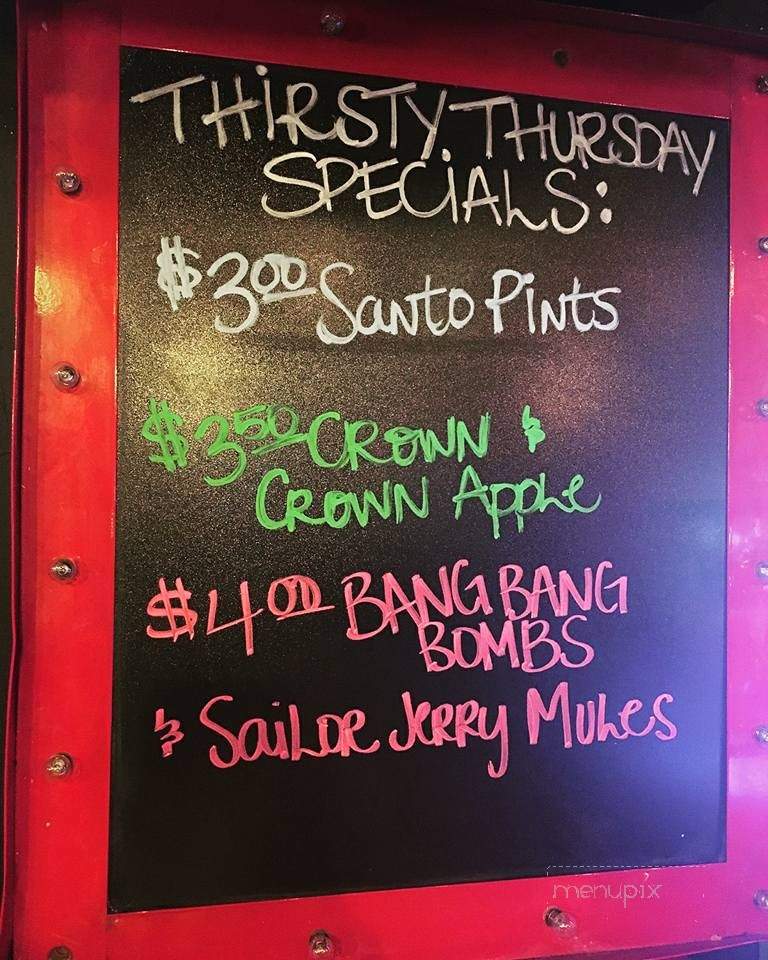 THIRSTY THURSDAY
SPECIALS:
$3.00 Santo Pints
$3.50 CROWN &
CROWN Apple
$4.00 BANG BANG
BOMBS
& Sailor Jerry Mules
menupix